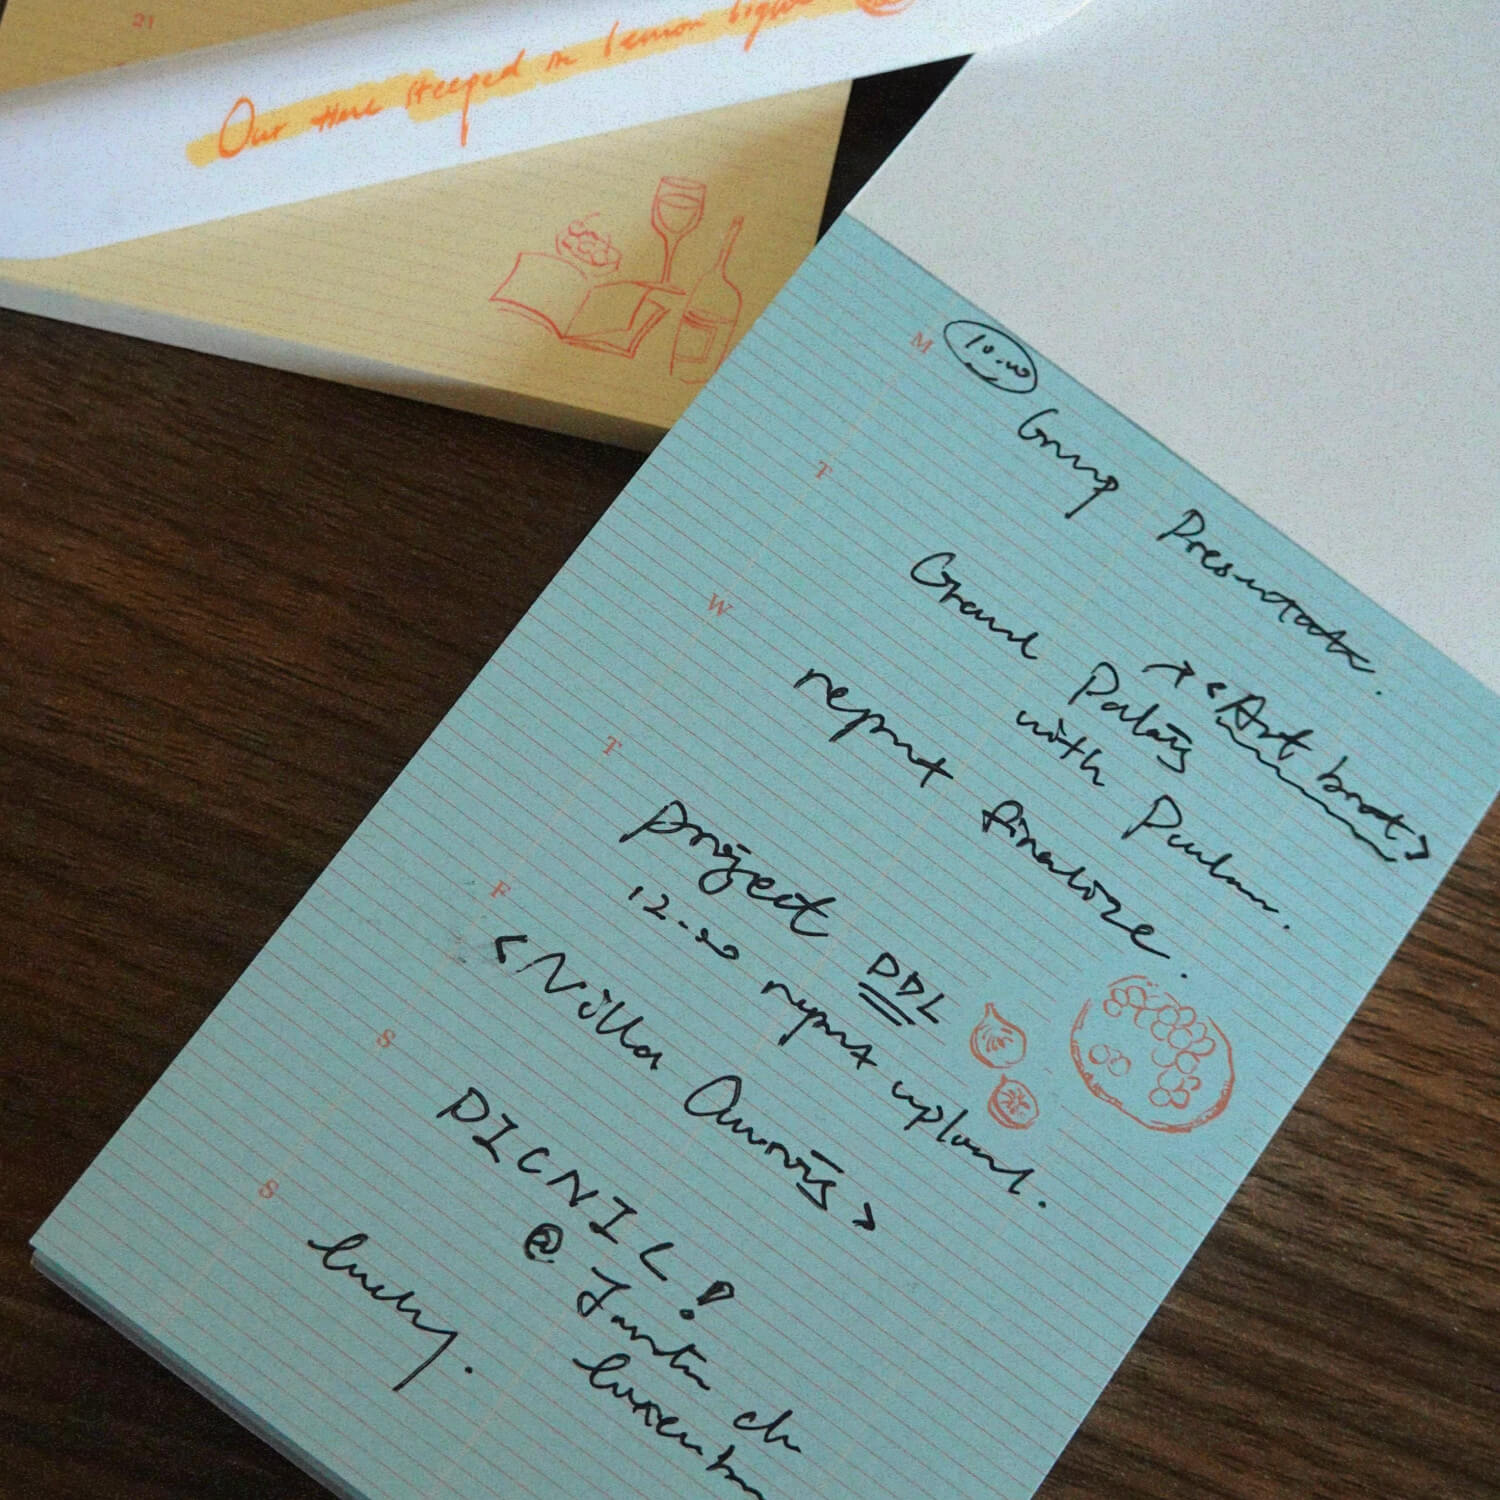 21
Our time steeped in lemon light
M 10:00
Group Presentation.
T
Grand Palais
→ <Art brut>
with
W
report finalize.
T
project DDL
12:00 report upload.
F
<Villa >
S
PICNIC!
@ Jardin du
S
lucky.